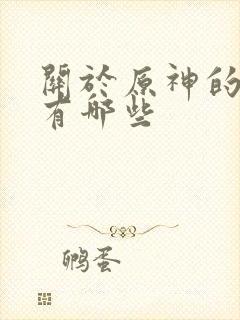 關於原神的
有那些
鹏蛋